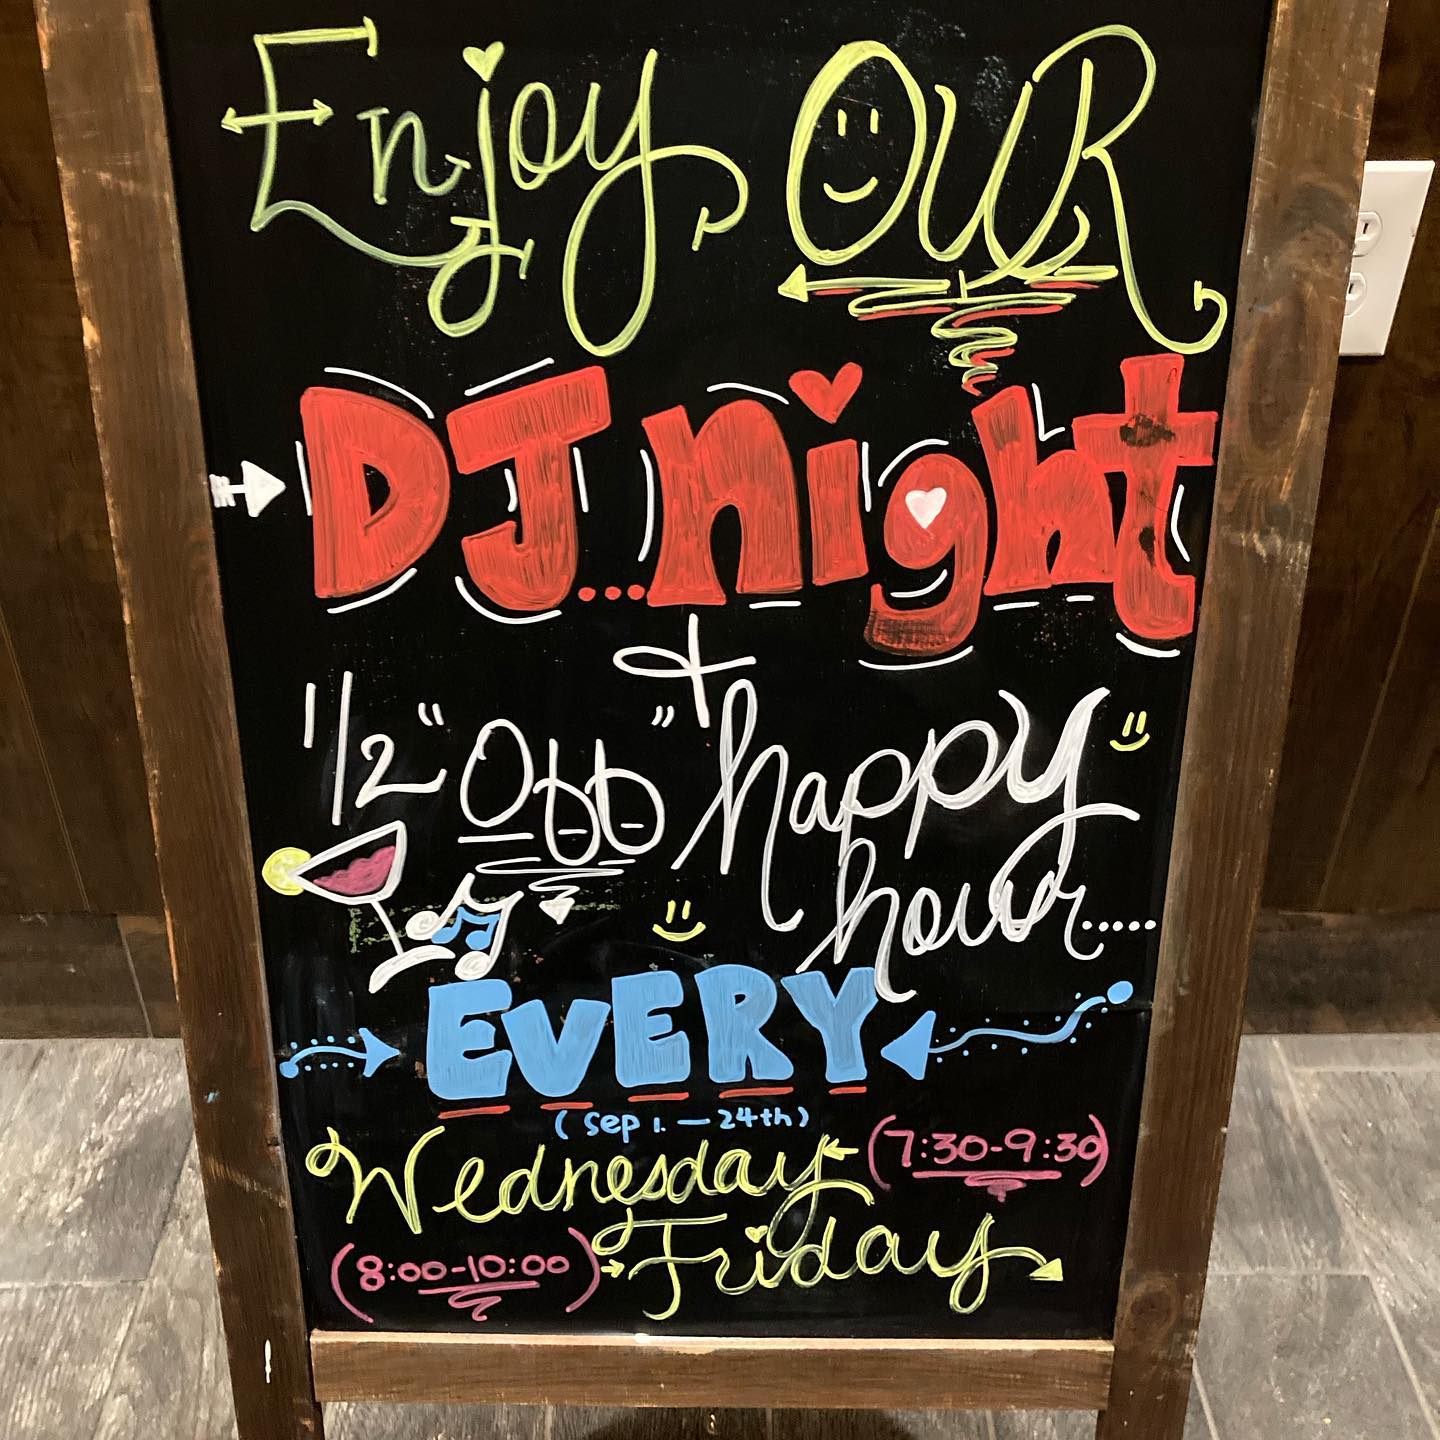 Enjoy OUR
DJ...night
+
1/2 "Off" happy
hour.....
EVERY
(sep 1. — 24th)
Wednesday (7:30-9:30)
(8:00-10:00) Friday